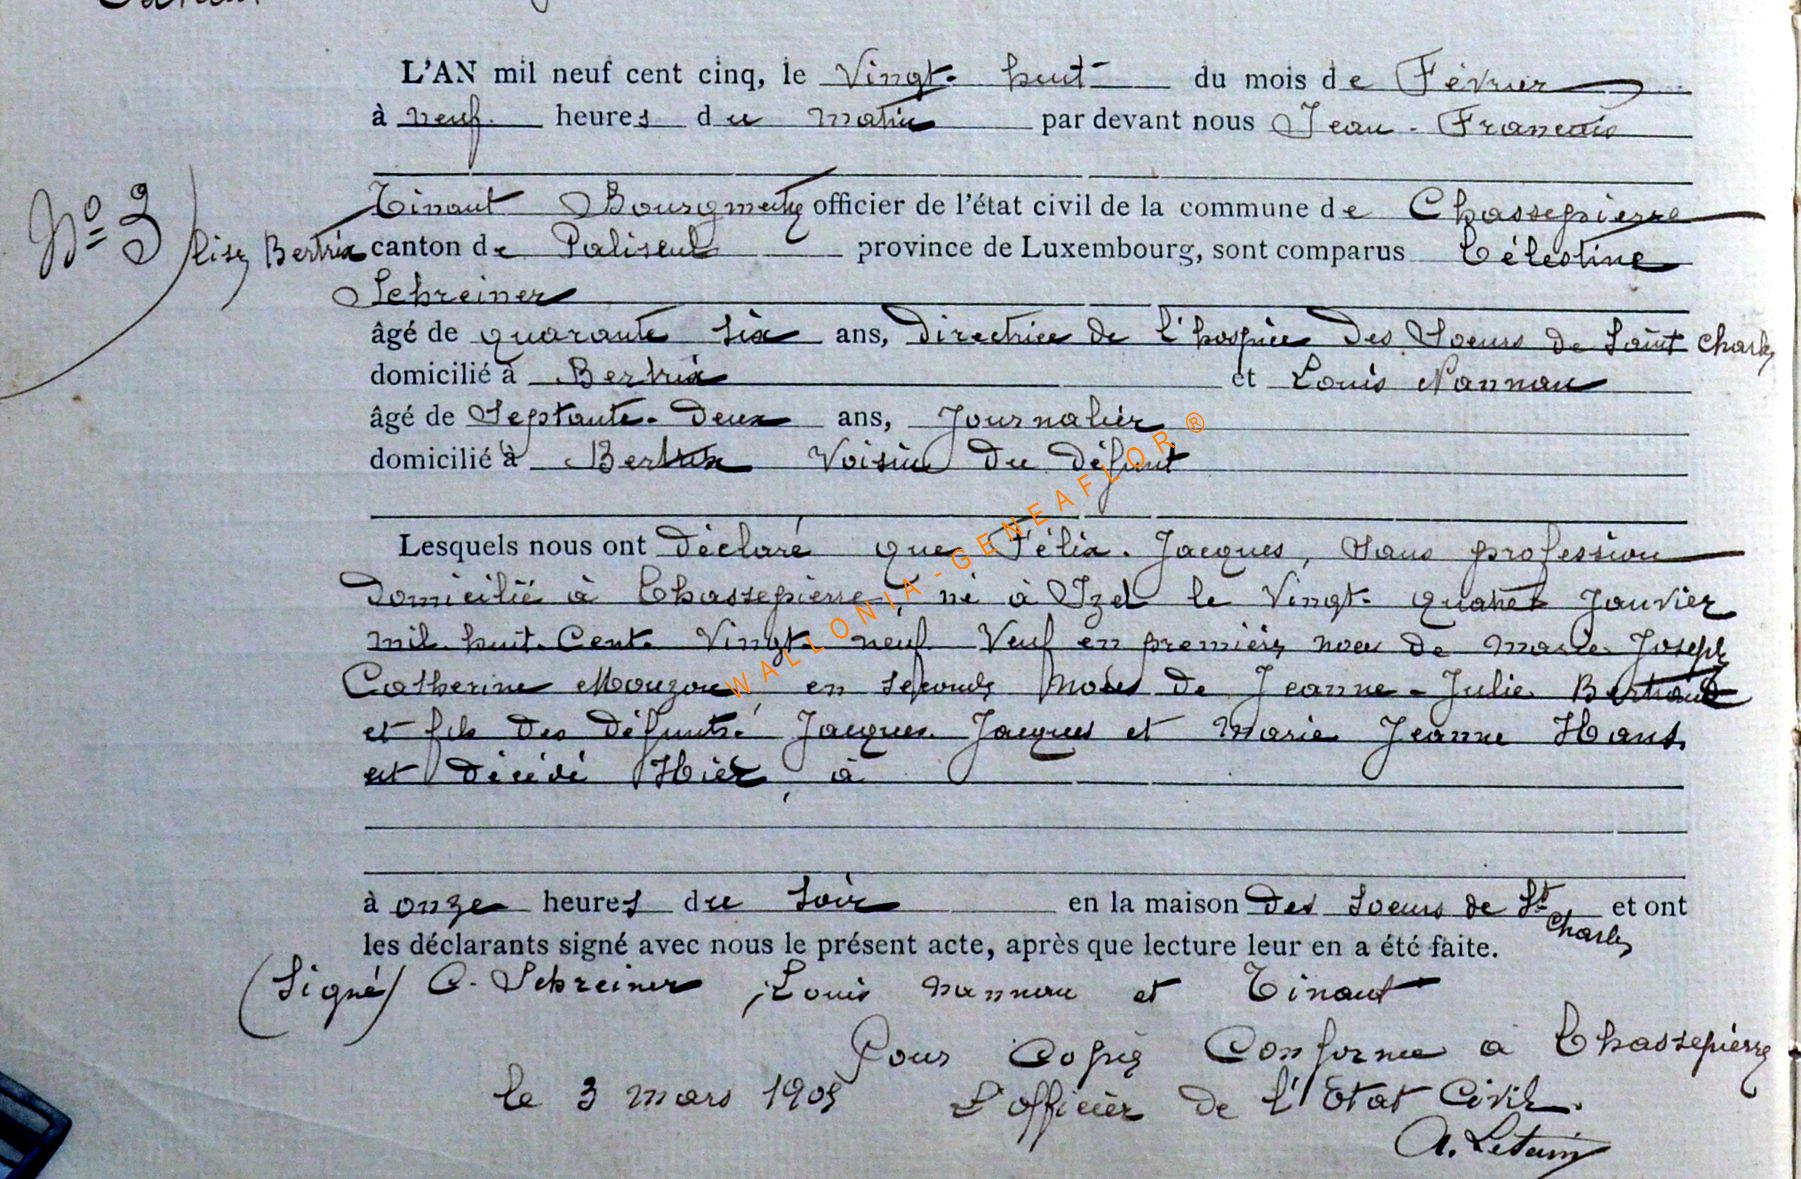 L'AN mil neuf cent cinq, le Vingt-huit du mois de Février
à neuf heures du matin par devant nous Jean-François
Tinant Bourgmestre officier de l'état civil de la commune de Chassepierre
N° 3 lisez Bertrix canton de Paliseul province de Luxembourg, sont comparus Célestine
Schreiner
âgé de quarante six ans, directrice de l'hospice des Soeurs de Saint Charles
domicilié à Bertrix et Louis Nannan
âgé de Septante-deux ans, Journalier
domicilié à Bertrix Voisin du défunt
Lesquels nous ont déclaré que Félix Jacques, Sans profession
domicilié à Chassepierre, né à Izel le Vingt-quatre Janvier
mil-huit-Cent-Vingt-neuf Veuf en premières noces de Marie-Joseph
Catherine Mouzon, en secondes noces de Jeanne-Julie Bertrand
et fils des défunts Jacques Jacques et Marie Jeanne Hans,
est décédé Hier, à
à onze heures du soir en la maison des soeurs de St Charles et ont
les déclarants signé avec nous le présent acte, après que lecture leur en a été faite.
(Signé) C. Schreiner, Louis Nannan et Tinant
Pour Copie Conforme à Chassepierre
le 3 mars 1905 L'officier de l'Etat Civil.
A. Letain
WALLONIA-GENEAFLOR®